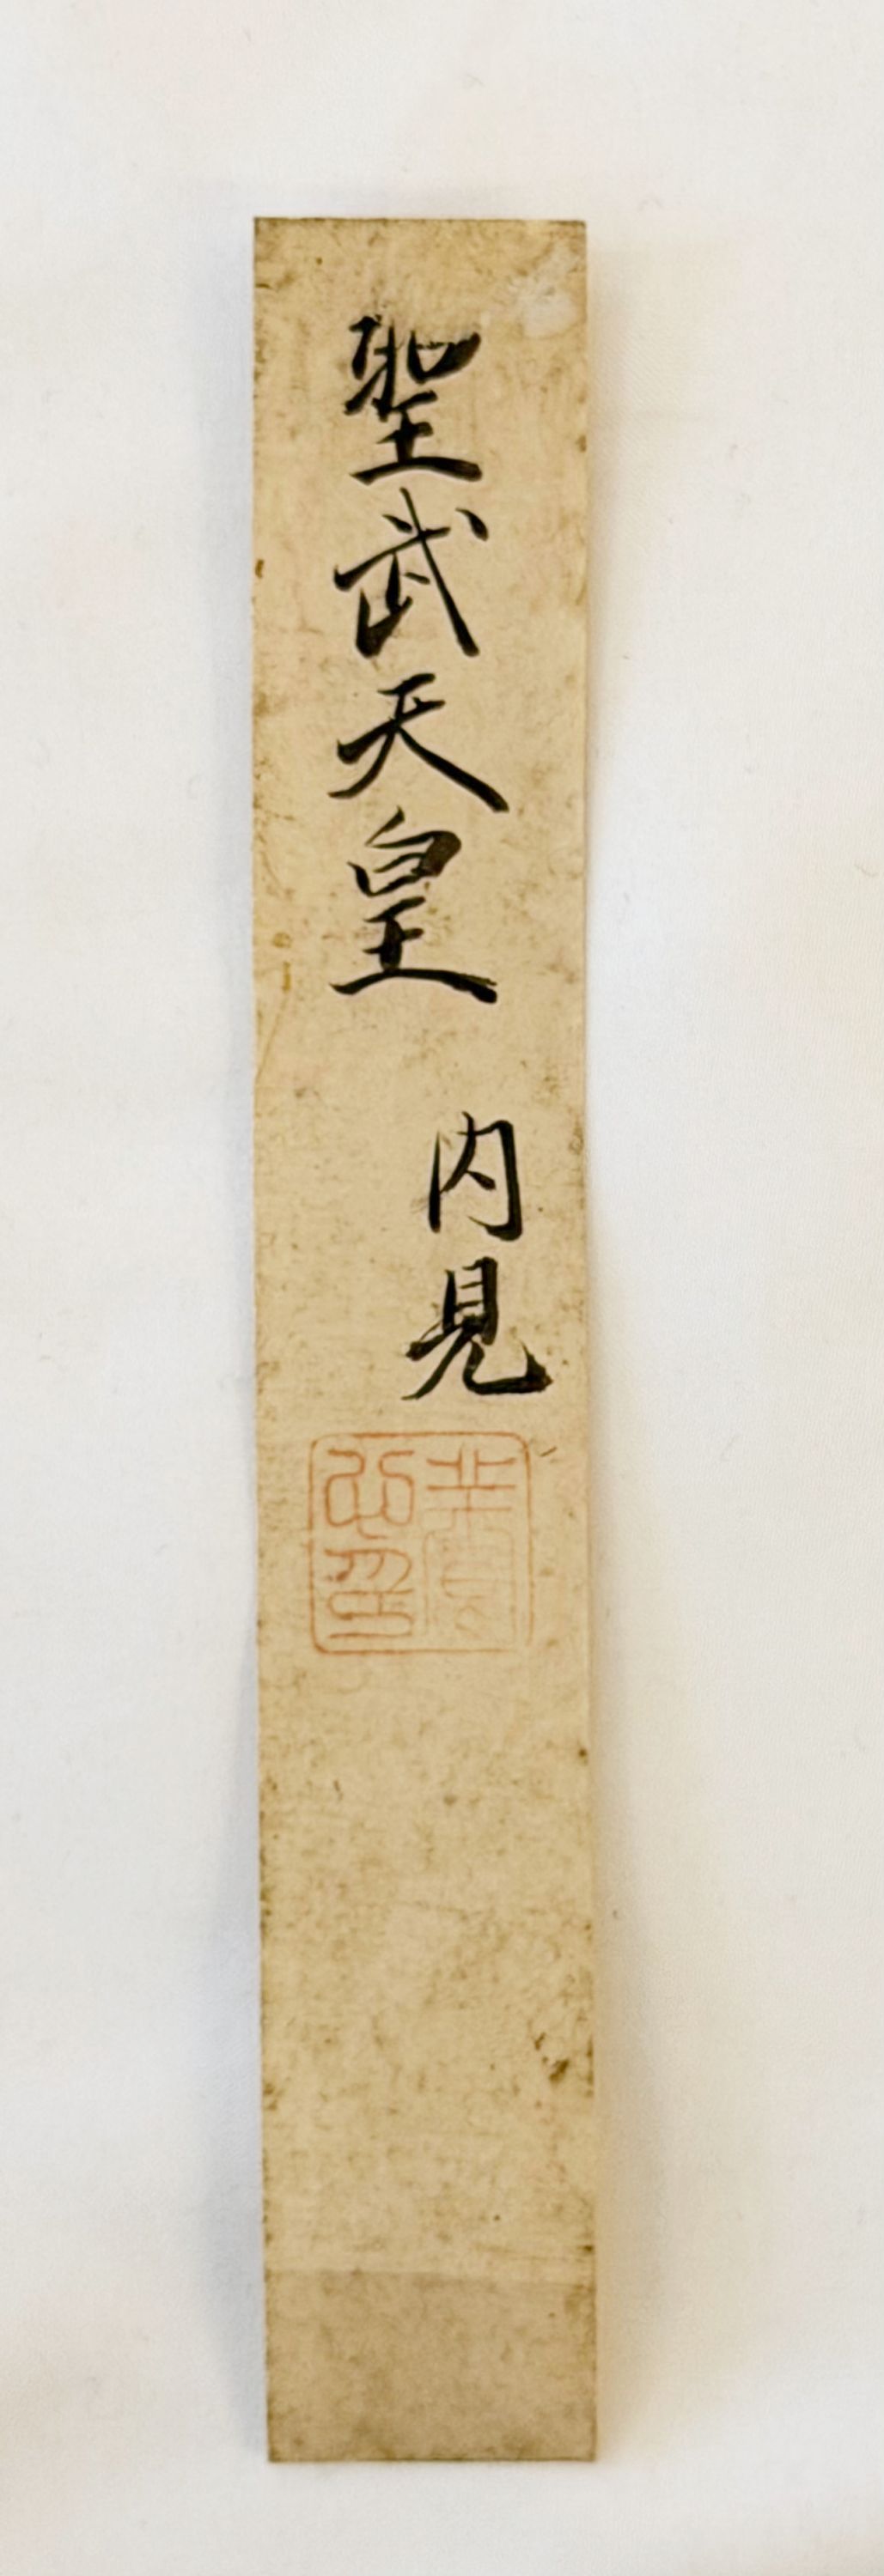 聖武天皇 内見